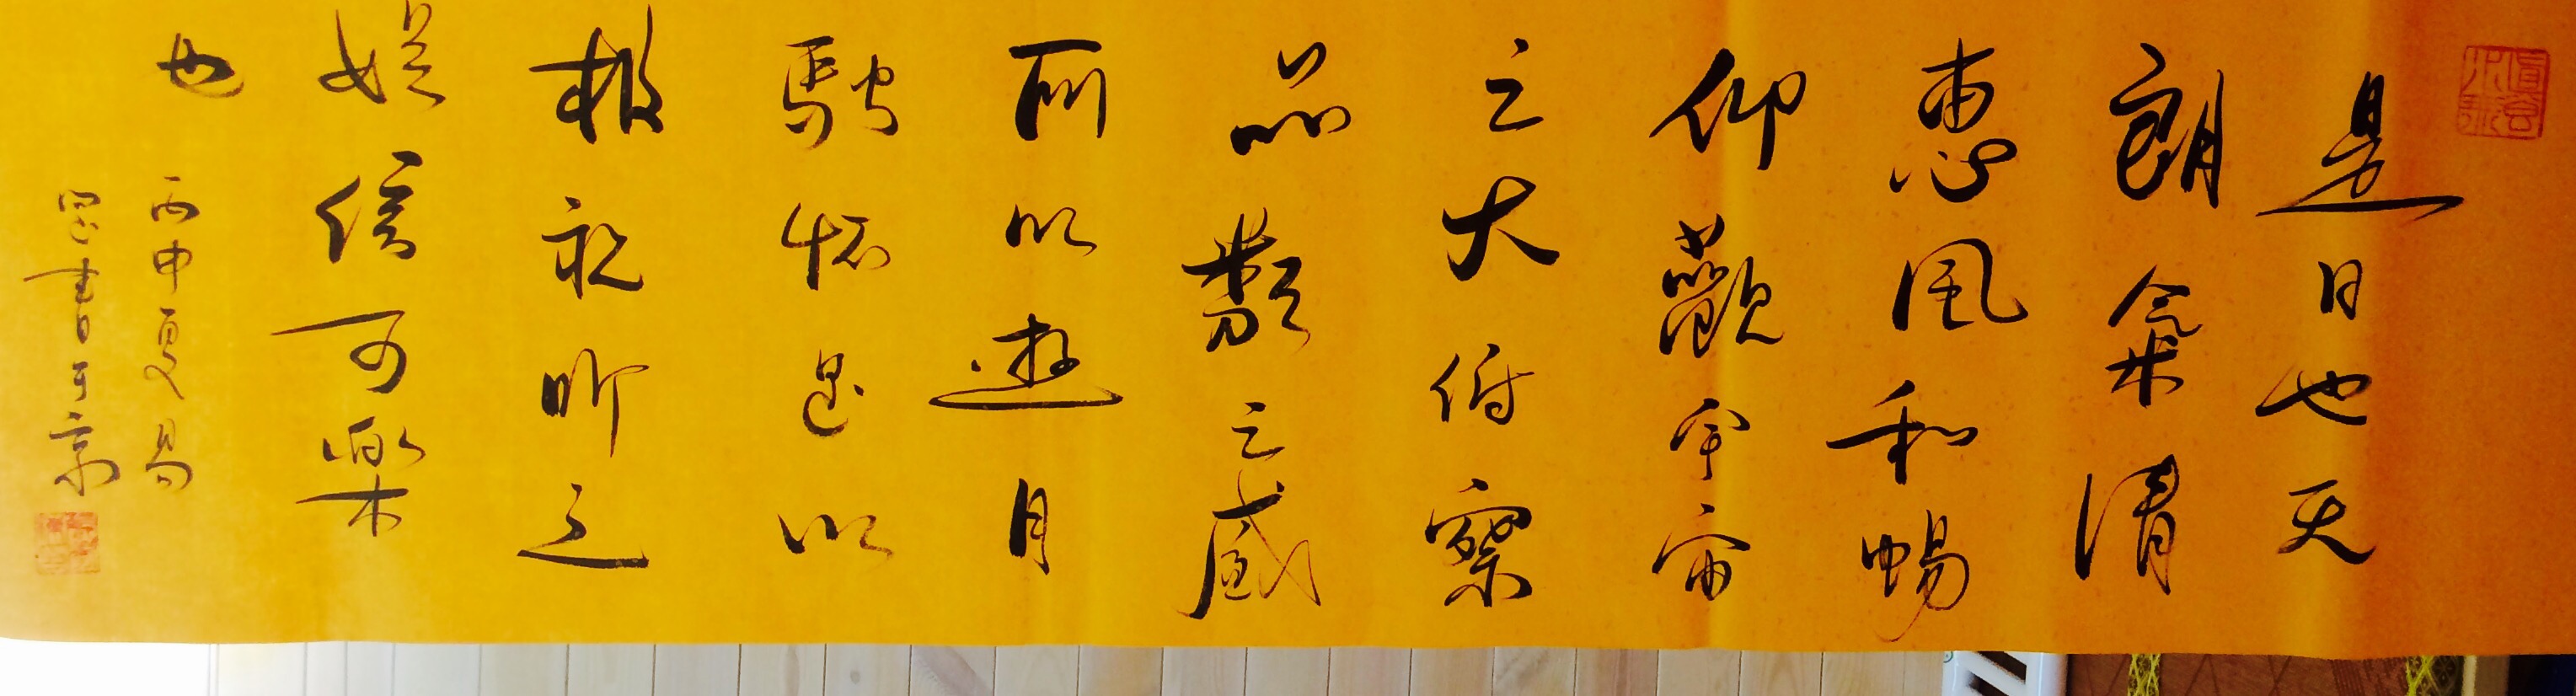 是日也天
朗氣清
惠風和暢
仰觀宇宙
之大俯察
品類之盛
所以遊目
騁懷足以
極視聽之
娱信可樂
也
丙申夏易
書于京